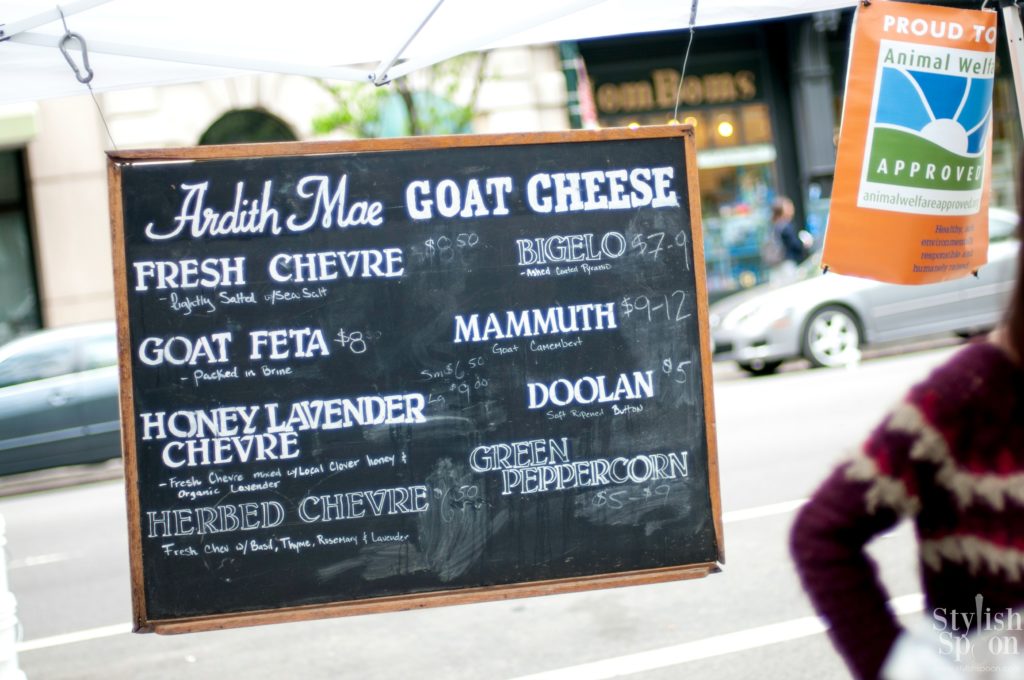 Ardith Mae GOAT CHEESE
FRESH CHEVRE $6.50
- lightly Salted w/Sea Salt
GOAT FETA $8
- Packed in Brine
Sm $6.50
HONEY LAVENDER Lg $9.00
CHEVRE
- Fresh Chevre mixed w/Local Clover honey &
Organic Lavender
HERBED CHEVRE
Fresh Chev w/ Basil, Thyme, Rosemary & Lavender
BIGELO $7-9
- Ashed Coated Pyramid
MAMMUTH $9-12
Goat Camembert
DOOLAN $5
Soft Ripened Button
GREEN
PEPPERCORN
$5-$9
TomBoms
PROUD TO
Animal Welfa
APPROVED
animalwelfareapproved.org
Healthy,
environmentally
responsible and
humanely raised
Stylish
Spoon